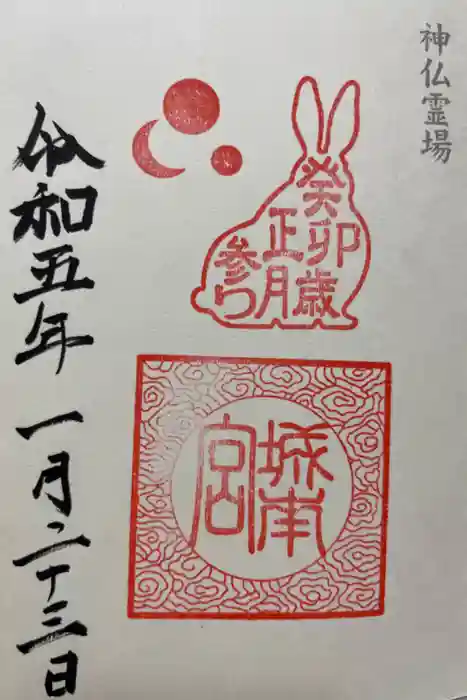 神仏霊場
癸卯歳
正月
参り
城南
宮
令和五年一月二十三日